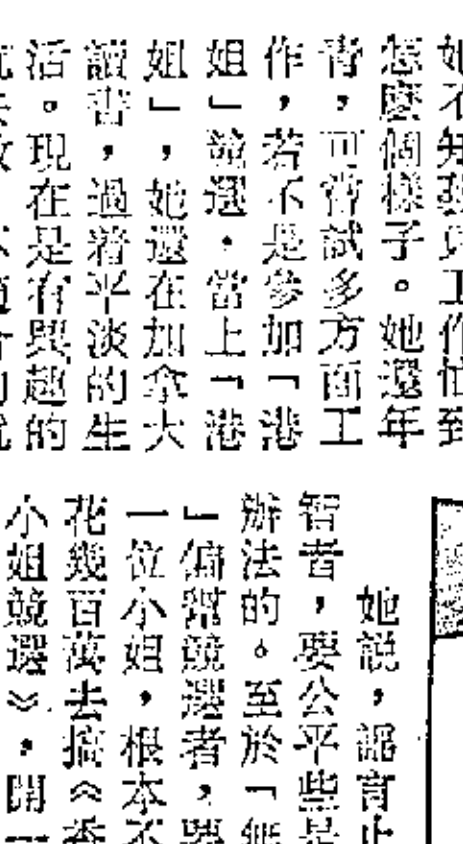 怎麼個樣子。她還年
青，可嘗試多方面工
作，若不是參加「港
姐」競選，當上「港
姐」，她還在加拿大
讀書，過着平淡的生
活。現在是有興趣的
她說，謠言止
智者，要公平些是
辦法的。至於「無
」偏幫競選者，要
一位小姐，根本不
花幾百萬去搞《香
小姐競選》，開